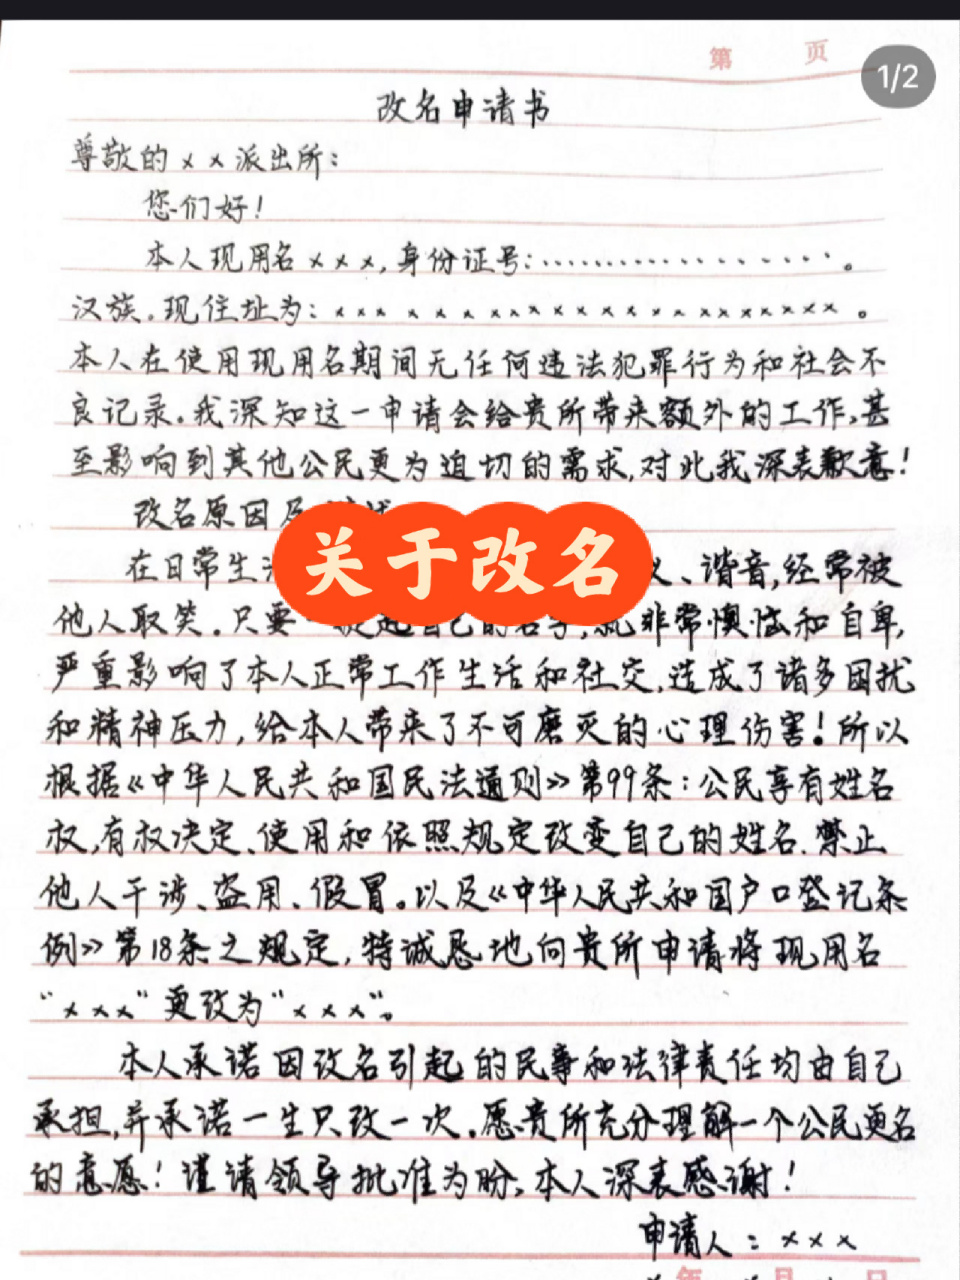 第 页
1/2
改名申请书
尊敬的××派出所：
您们好！
本人现用名×××,身份证号:··················。
汉族.现住址为：××××××××××××××××××××××。
本人在使用现用名期间无任何违法犯罪行为和社会不
良记录。我深知这一申请会给贵所带来额外的工作,甚
至影响到其他公民更为迫切的需求,对此我深表歉意！
改名原因及
关于改名
在日常生 、谐音,经常被
他人取笑。只要一提起自己的名字,就非常懊恼和自卑,
严重影响了本人正常工作生活和社交,造成了诸多困扰
和精神压力,给本人带来了不可磨灭的心理伤害！所以
根据《中华人民共和国民法通则》第99条：公民享有姓名
权,有权决定、使用和依照规定改变自己的姓名.禁止
他人干涉、盗用、假冒。以及《中华人民共和国户口登记条
例》第18条之规定,特诚恳地向贵所申请将现用名
“×××”更改为“×××”。
本人承诺因改名引起的民事和法律责任均由自己
承担,并承诺一生只改一次。愿贵所充分理解一个公民更名
的意愿！谨请领导批准为盼,本人深表感谢！
申请人：×××
年 月 日